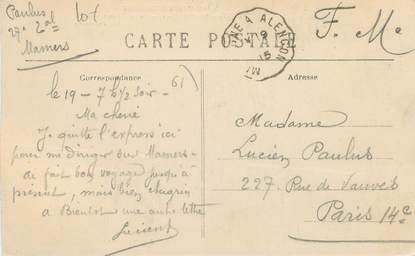 Paulus
27e
Mamers
F. M.
CARTE POSTALE
ALENÇON
9
15
Correspondance
Adresse
61
le 19 - 7h 1/2 soir -
Ma chérie
Je quitte l'express ici
pour me diriger sur Mamers -
ai fait bon voyage jusqu'à
présent, mais bien chagrin
à Bientôt une autre lettre
Lucien
Madame
Lucien Paulus
227, Rue de Vanves
Paris 14e